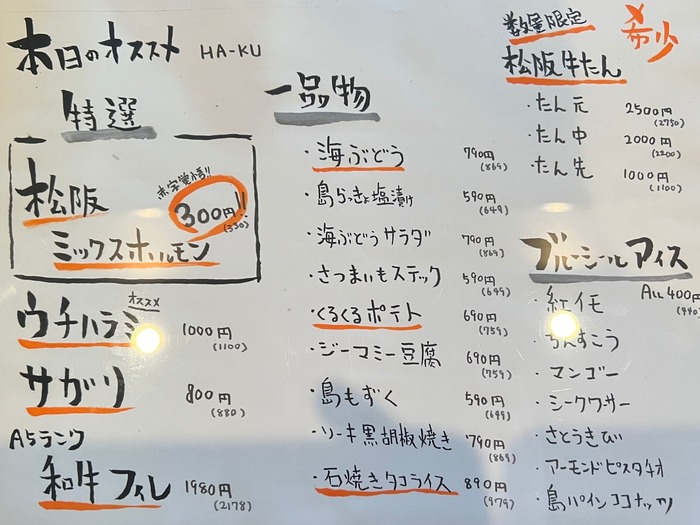 本日のオススメ HA-KU
特選
松阪
ミックスホルモン
赤字覚悟!!
300円!!
(330)
オススメ
ウチハラミ 1000円
(1100)
サガリ 800円
(880)
A5ランク
和牛フィレ 1980円
(2178)
一品物
・海ぶどう 790円
(869)
・島らっきょ塩漬け 590円
(649)
・海ぶどうサラダ 790円
(869)
・さつまいもステック 590円
(649)
・くるくるポテト 690円
(759)
・ジーマミー豆腐 690円
(759)
・島もずく 590円
(649)
・ソーキ黒胡椒焼き 790円
(869)
・石焼きタコライス 890円
(979)
数量限定
希少
松阪牛たん
・たん元 2500円
(2750)
・たん中 2000円
(2200)
・たん先 1000円
(1100)
ブルーシールアイス
ALL 400円
(440)
・紅イモ
・ちんすこう
・マンゴー
・シークワーサー
・さとうきび
・アーモンドピスタチオ
・島パインココナッツ